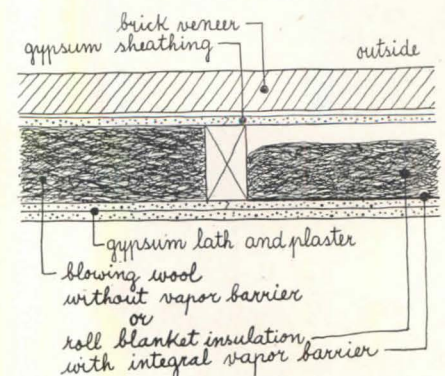 brick veneer
gypsum sheathing
outside
gypsum lath and plaster
blowing wool
without vapor barrier
or
roll blanket insulation
with integral vapor barrier